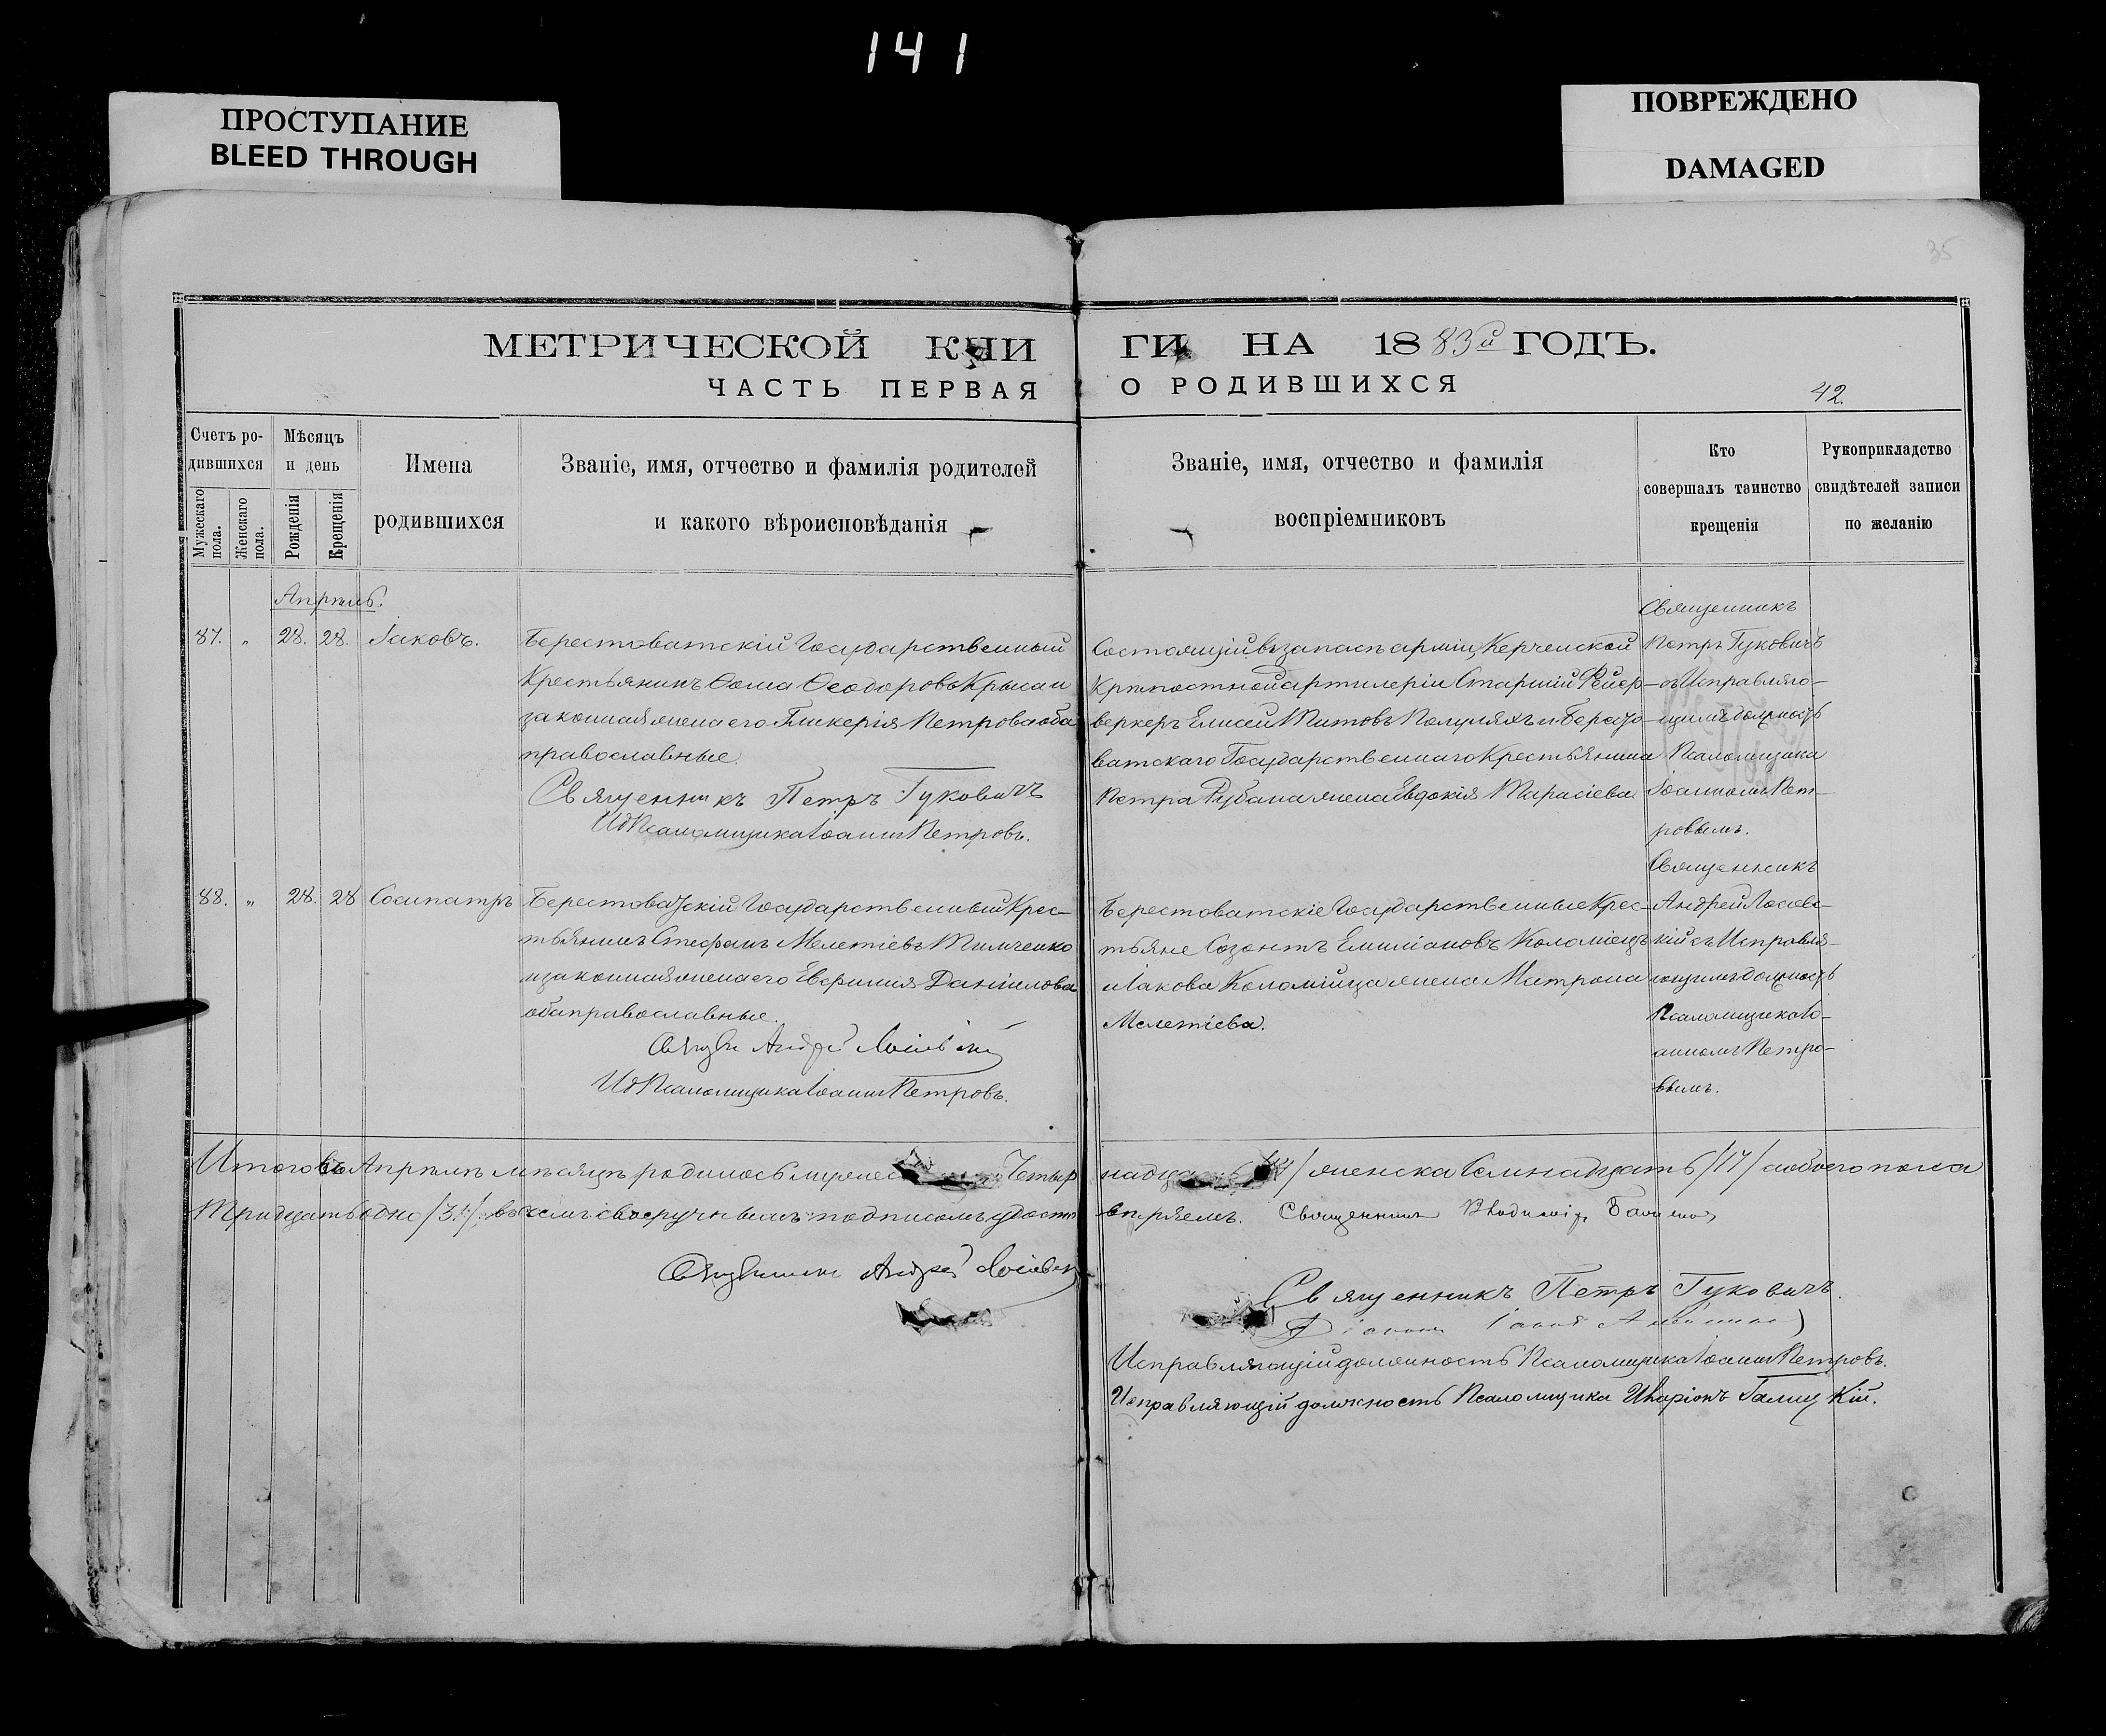 141
ПРОСТУПАНИЕ
BLEED THROUGH
ПОВРЕЖДЕНО
DAMAGED
35
МЕТРИЧЕСКОЙ КНИ ГИ НА 1883й ГОДЪ.
ЧАСТЬ ПЕРВАЯ О РОДИВШИХСЯ
42.
Счетъ ро-
дившихся
Мужескаго пола.
Женскаго пола.
Мѣсяцъ
и день
Рожденія
Крещенія
Имена
родившихся
Званіе, имя, отчество и фамилія родителей
и какого вѣроисповѣданія
Званіе, имя, отчество и фамилія
воспріемниковъ
Кто
совершалъ таинство
крещенія
Рукоприкладство
свидѣтелей записи
по желанію
Апрѣль.
87. " 28. 28. Іаковъ.
Берестоватскій Государственный
Крестьянинъ Ѳома Ѳеодоровъ Крыса и
законная жена его Гликерія Петрова оба
православные.
Священникъ Петръ Гуковичъ
ИдПсаломщика Іоаннъ Петровъ.
Состоящій въ запасѣ арміи, Керченской
Крѣпостной артилеріи Старшій Фейер-
веркеръ Елисей Титовъ Полуляхъ и Бересто-
ватскаго Государственнаго Крестьянина
Петра Рубана жена Евдокія Тарасіева.
Священникъ
Петръ Гуковичъ
съ Исправляю-
щимъ должность
Псаломщика
Іоанномъ Пет-
ровымъ.
88. " 28. 28 Сосипатръ
Берестоватскій Государственный Крес-
тьянинъ Стефанъ Мелетіевъ Тимченко
и законная жена его Евфимія Даніилова
оба православные.
Андрей
ИдПсаломщика Іоаннъ Петровъ.
Берестоватскіе Государственные Крес-
тьяне Созонтъ Емиліановъ Коломіецъ
и Іакова Коломійца жена Матрона
Мелетіева.
Священникъ
Андрей Лосіевс-
кій съ Исправля-
ющимъ должность
Псаломщика Іо-
анномъ Петро-
вымъ.
Итого въ Апрѣлѣ мѣсяцѣ родилось Четыр надца женска Семнадцать /17/ а обоего пола
Тридцать одно /31/. въ чемъ своеручнымъ подписомъ удосто вѣряемъ. Священникъ
Андрей
Священникъ Петръ Гуковичъ.
Исправляющій должность Псаломщика Іоаннъ Петровъ.
Исправляющій должность Псаломщика Иларіонъ Галицкій.